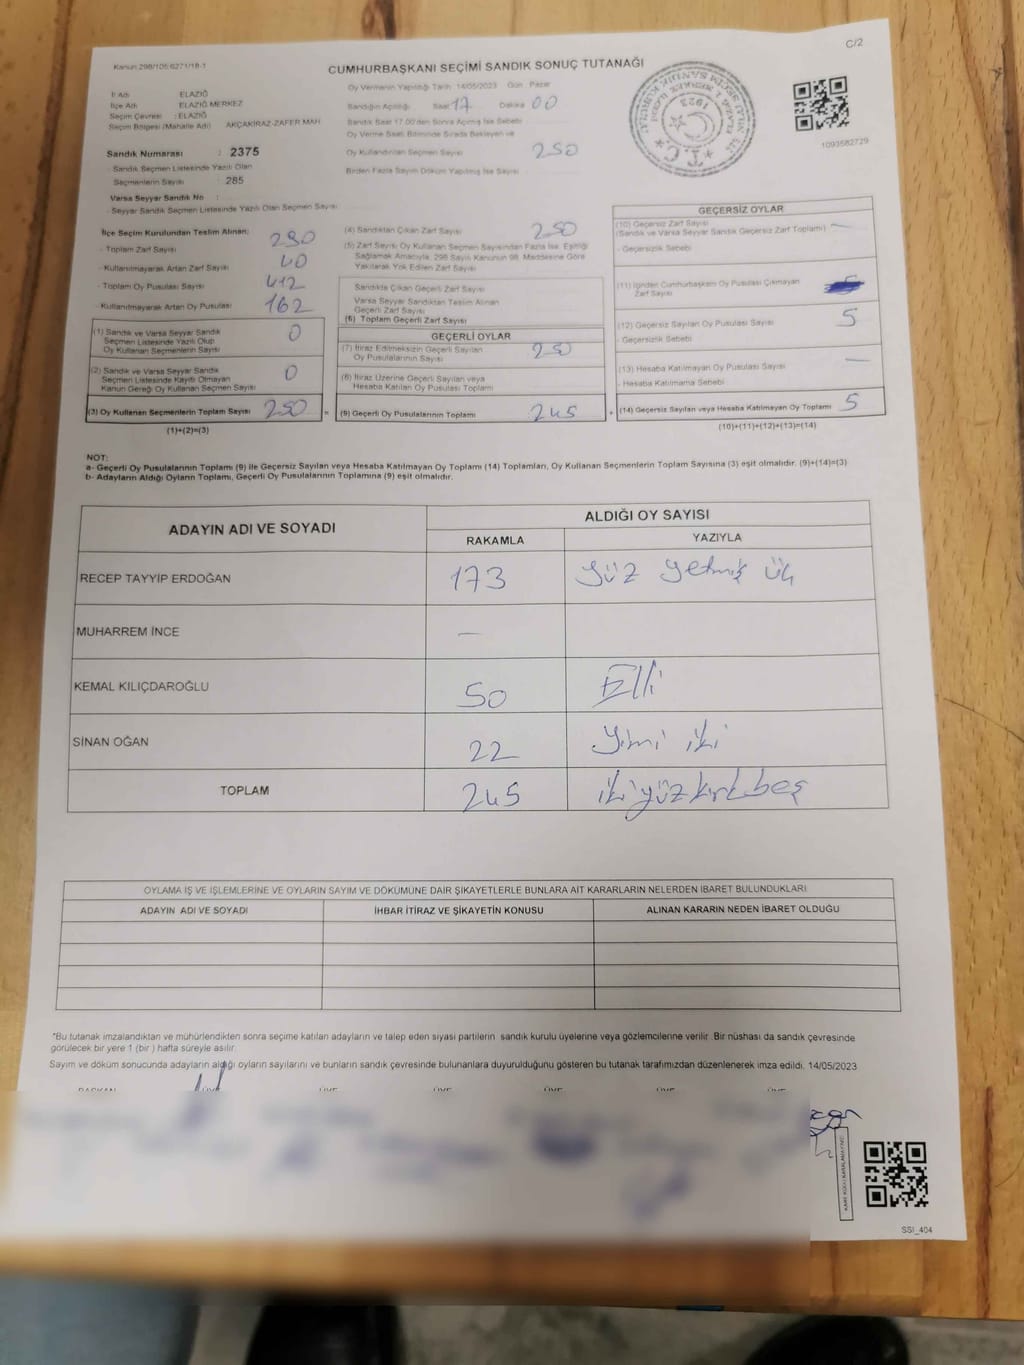 C/2
Kanun 298/105 6271/18-1
CUMHURBAŞKANI SEÇİMİ SANDIK SONUÇ TUTANAĞI
İl Adı : ELAZIĞ
İlçe Adı : ELAZIĞ MERKEZ
Seçim Çevresi : ELAZIĞ
Seçim Bölgesi (Mahalle Adı) : AKÇAKİRAZ-ZAFER MAH
Sandık Numarası : 2375
Sandık Seçmen Listesinde Yazılı Olan
Seçmenlerin Sayısı : 285
Varsa Seyyar Sandık No :
- Seyyar Sandık Seçmen Listesinde Yazılı Olan Seçmen Sayısı
Oy Vermenin Yapıldığı Tarih: 14/05/2023 Gün: Pazar
Sandığın Açıldığı Saat 17 Dakika 00
Sandık Saat 17.00'den Sonra Açılmış İse Sebebi
Oy Verme Saati Bitiminde Sırada Bekleyen ve
Oy Kullandırılan Seçmen Sayısı 250
Birden Fazla Sayım Döküm Yapılmış İse Sayısı
1093582729
T.C.
1923
İlçe Seçim Kurulundan Teslim Alınan:
- Toplam Zarf Sayısı 290
- Kullanılmayarak Artan Zarf Sayısı 40
- Toplam Oy Pusulası Sayısı 412
- Kullanılmayarak Artan Oy Pusulası 162
(1) Sandık ve Varsa Seyyar Sandık
Seçmen Listesinde Yazılı Olup
Oy Kullanan Seçmenlerin Sayısı 0
(2) Sandık ve Varsa Seyyar Sandık
Seçmen Listesinde Kayıtlı Olmayan
Kanun Gereği Oy Kullanan Seçmen Sayısı 0
(3) Oy Kullanan Seçmenlerin Toplam Sayısı 250 =
(1)+(2)=(3)
(4) Sandıktan Çıkan Zarf Sayısı 250
(5) Zarf Sayısı Oy Kullanan Seçmen Sayısından Fazla İse, Eşitliği
Sağlamak Amacıyla, 298 Sayılı Kanunun 98. Maddesine Göre
Yakılarak Yok Edilen Zarf Sayısı
Sandıkta Çıkan Geçerli Zarf Sayısı
Varsa Seyyar Sandıktan Teslim Alınan
Geçerli Zarf Sayısı
(6) Toplam Geçerli Zarf Sayısı
GEÇERLİ OYLAR
(7) İtiraz Edilmeksizin Geçerli Sayılan
Oy Pusulalarının Sayısı 250
(8) İtiraz Üzerine Geçerli Sayılan veya
Hesaba Katılan Oy Pusulası Toplamı
(9) Geçerli Oy Pusulalarının Toplamı 245 +
GEÇERSİZ OYLAR
(10) Geçersiz Zarf Sayısı
(Sandık ve Varsa Seyyar Sandık Geçersiz Zarf Toplamı) —
- Geçersizlik Sebebi
(11) İçinden Cumhurbaşkanı Oy Pusulası Çıkmayan
Zarf Sayısı
(12) Geçersiz Sayılan Oy Pusulası Sayısı 5
- Geçersizlik Sebebi
(13) Hesaba Katılmayan Oy Pusulası Sayısı —
- Hesaba Katılmama Sebebi
(14) Geçersiz Sayılan veya Hesaba Katılmayan Oy Toplamı 5
(10)+(11)+(12)+(13)=(14)
NOT:
a- Geçerli Oy Pusulalarının Toplamı (9) ile Geçersiz Sayılan veya Hesaba Katılmayan Oy Toplamı (14) Toplamları, Oy Kullanan Seçmenlerin Toplam Sayısına (3) eşit olmalıdır. (9)+(14)=(3)
b- Adayların Aldığı Oyların Toplamı, Geçerli Oy Pusulalarının Toplamına (9) eşit olmalıdır.
ADAYIN ADI VE SOYADI ALDIĞI OY SAYISI
RAKAMLA YAZIYLA
RECEP TAYYİP ERDOĞAN 173 yüz yetmiş üç
MUHARREM İNCE —
KEMAL KILIÇDAROĞLU 50 Elli
SİNAN OĞAN 22 Yirmi iki
TOPLAM 245 iki yüz kırk beş
OYLAMA İŞ VE İŞLEMLERİNE VE OYLARIN SAYIM VE DÖKÜMÜNE DAİR ŞİKAYETLERLE BUNLARA AİT KARARLARIN NELERDEN İBARET BULUNDUKLARI
ADAYIN ADI VE SOYADI İHBAR İTİRAZ VE ŞİKAYETİN KONUSU ALINAN KARARIN NEDEN İBARET OLDUĞU
*Bu tutanak imzalandıktan ve mühürlendikten sonra seçime katılan adayların ve talep eden siyasi partilerin sandık kurulu üyelerine veya gözlemcilerine verilir. Bir nüshası da sandık çevresinde
görülecek bir yere 1 (bir) hafta süreyle asılır.
Sayım ve döküm sonucunda adayların aldığı oyların sayılarını ve bunların sandık çevresinde bulunanlara duyurulduğunu gösteren bu tutanak tarafımızdan düzenlenerek imza edildi. 14/05/2023
BAŞKAN ÜYE ÜYE ÜYE ÜYE ÜYE
SSI_404